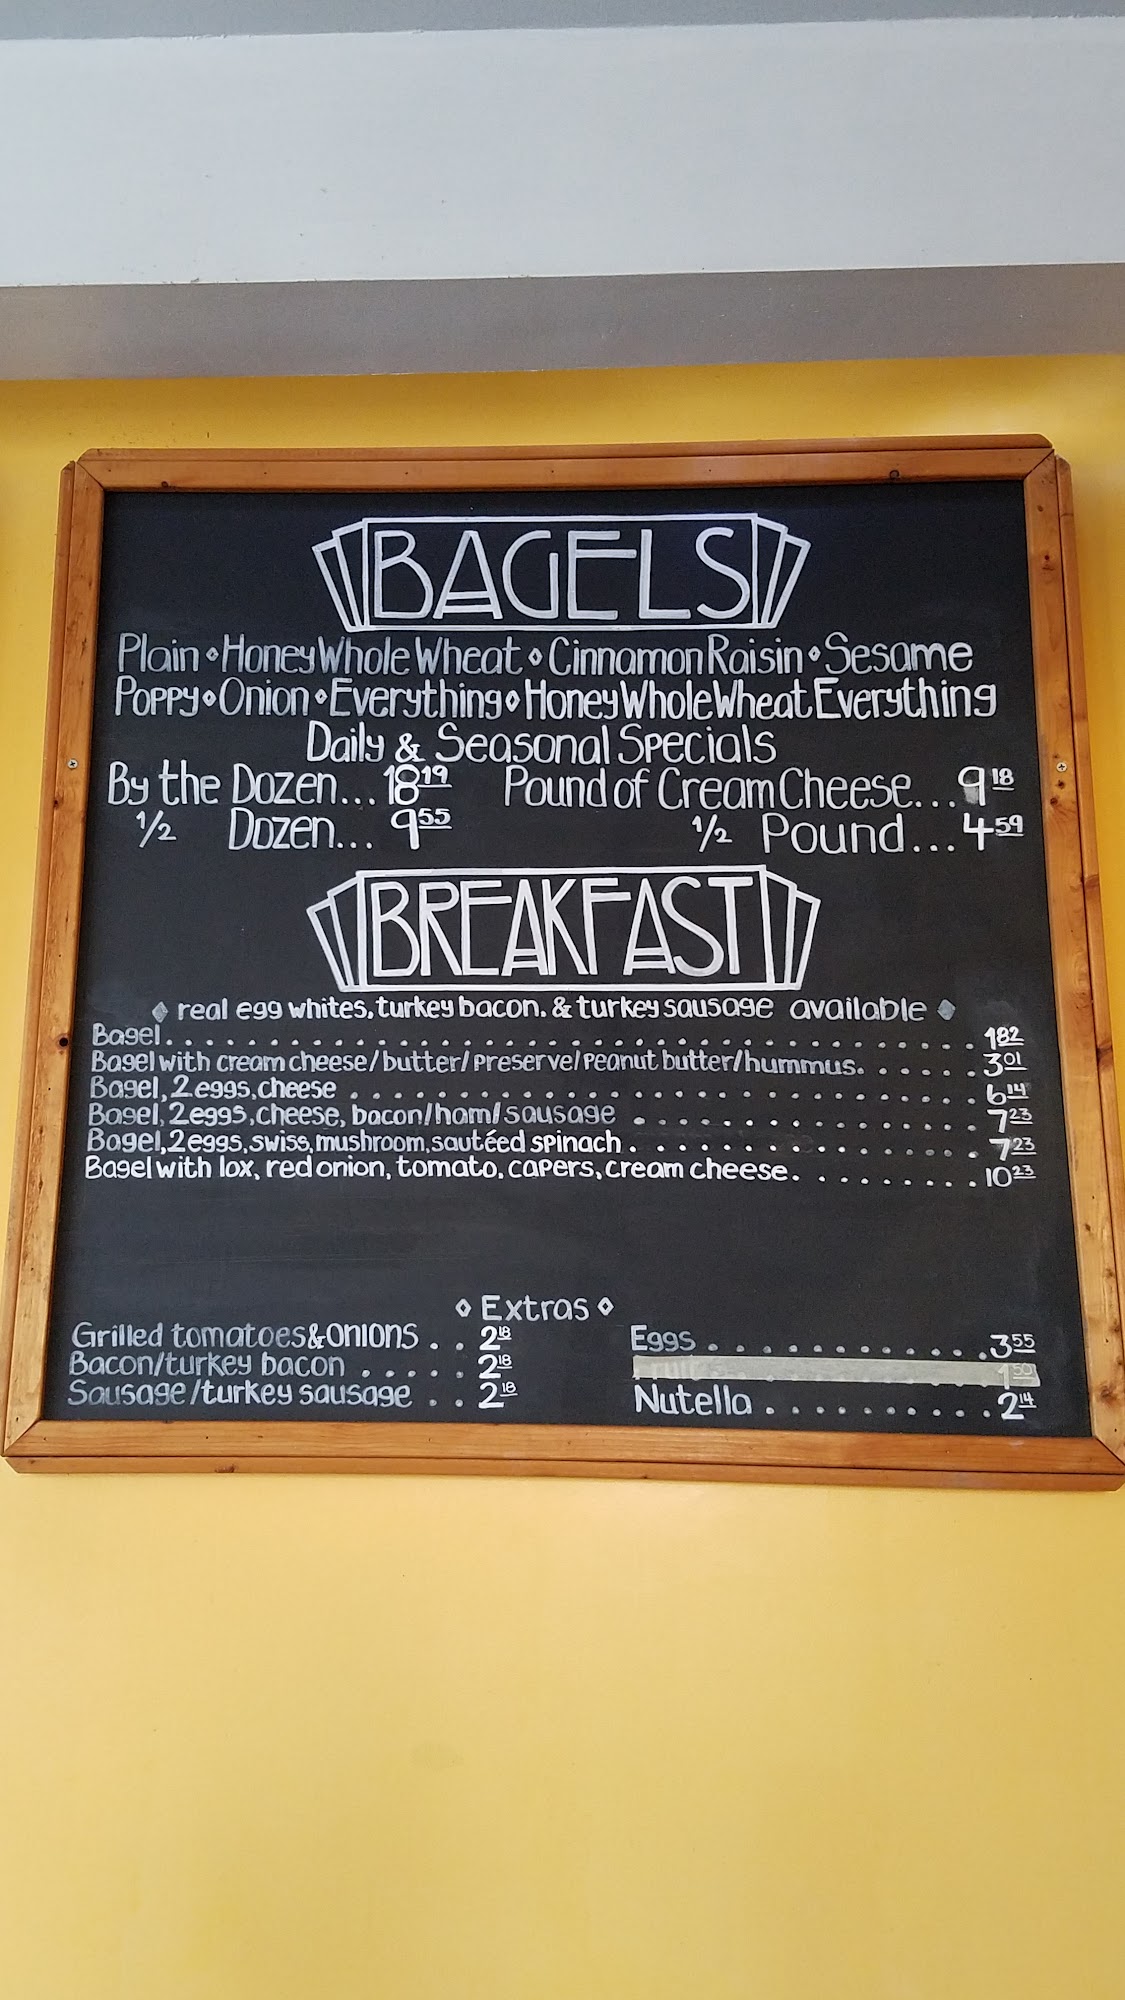 BAGELS
Plain ⋄ Honey Whole Wheat ⋄ Cinnamon Raisin ⋄ Sesame
Poppy ⋄ Onion ⋄ Everything ⋄ Honey Whole Wheat Everything
Daily & Seasonal Specials
By the Dozen... 18 19 Pound of Cream Cheese... 9 18
1/2 Dozen... 9 55 1/2 Pound... 4 59
BREAKFAST
◆ real egg whites, turkey bacon. & turkey sausage available ◆
Bagel. . . . . . . . . . . . . . . . . . . . . . . . . . . . . . . . . . . 1 82
Bagel with cream cheese/butter/preserve/peanut butter/hummus. . . . . . 3 01
Bagel, 2 eggs, cheese . . . . . . . . . . . . . . . . . . . . . . . . . . 6 14
Bagel, 2 eggs, cheese, bacon/ham/sausage . . . . . . . . . . . . . . . 7 23
Bagel, 2 eggs, swiss, mushroom, sautéed spinach . . . . . . . . . . . . . . 7 23
Bagel with lox, red onion, tomato, capers, cream cheese. . . . . . . . . 10 23
⋄ Extras ⋄
Grilled tomatoes & onions . . 2 18 Eggs . . . . . . . . . . . . 3 55
Bacon/turkey bacon . . . . . 2 18 1 50
Sausage/turkey sausage . . 2 18 Nutella . . . . . . . . . . 2 14